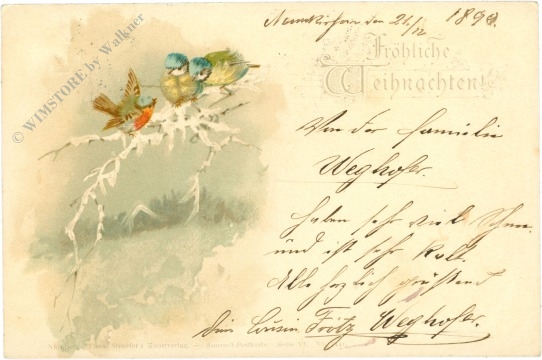 Neunkirchen den 21/12 1898.
Fröhliche
Weihnachten!
Von der Familie
Weghofer.
haben sehr viel Schnee
und ist sehr kalt.
Alle herzlich grüßend
dein Cousin Fritz Weghofer.
© WIMSTORE by Walkner